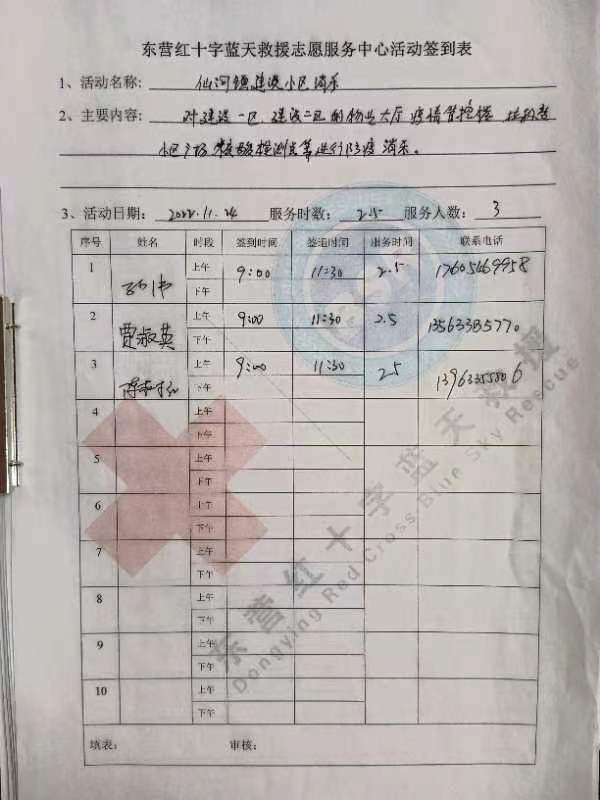 东营红十字蓝天救援志愿服务中心活动签到表
1、活动名称: 仙河镇建设小区消杀
2、主要内容: 对建设一区、建设二区的物业大厅 疫情管控楼
小区广场 核酸检测点等进行防疫消杀。
3、活动日期: 2022.11.24 服务时数: 2.5 服务人数: 3
序号 姓名 时段 签到时间 签退时间 服务时间 联系电话
1 上午 9:00 11:30 2.5 17605469958
下午
2 贾淑英 上午 9:00 11:30 2.5 13563385770
下午
3 上午 9:00 11:30 2.5 13963355806
下午
4 上午
下午
5 上午
下午
6 上午
下午
7 上午
下午
8 上午
下午
9 上午
下午
10 上午
下午
填表: 审核:
东营红十字蓝天救援
Dongying Red Cross Blue Sky Rescue